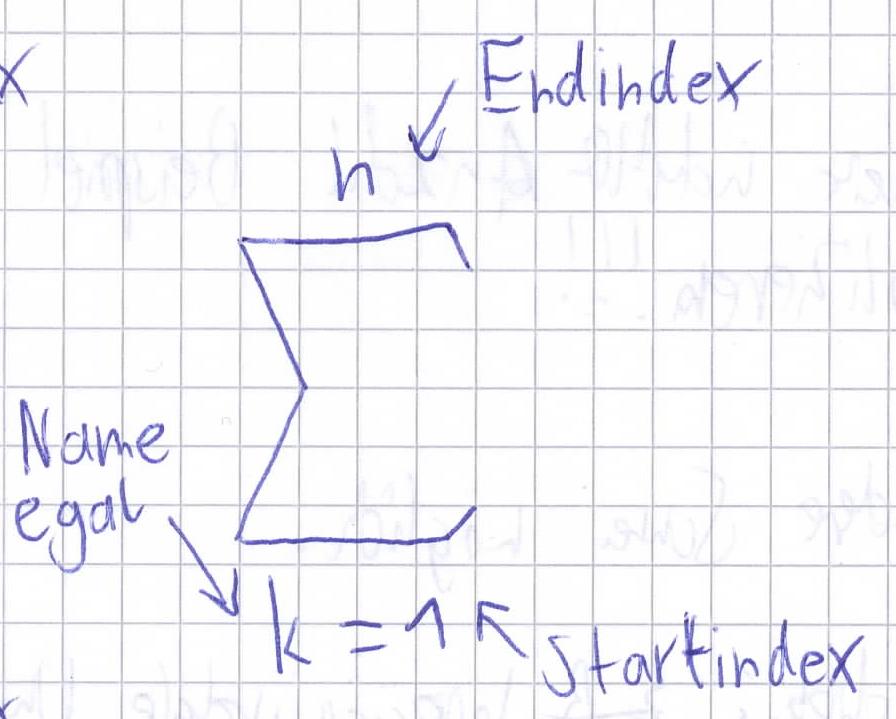 x
Endindex
n
Name
egal
k = 1
Startindex